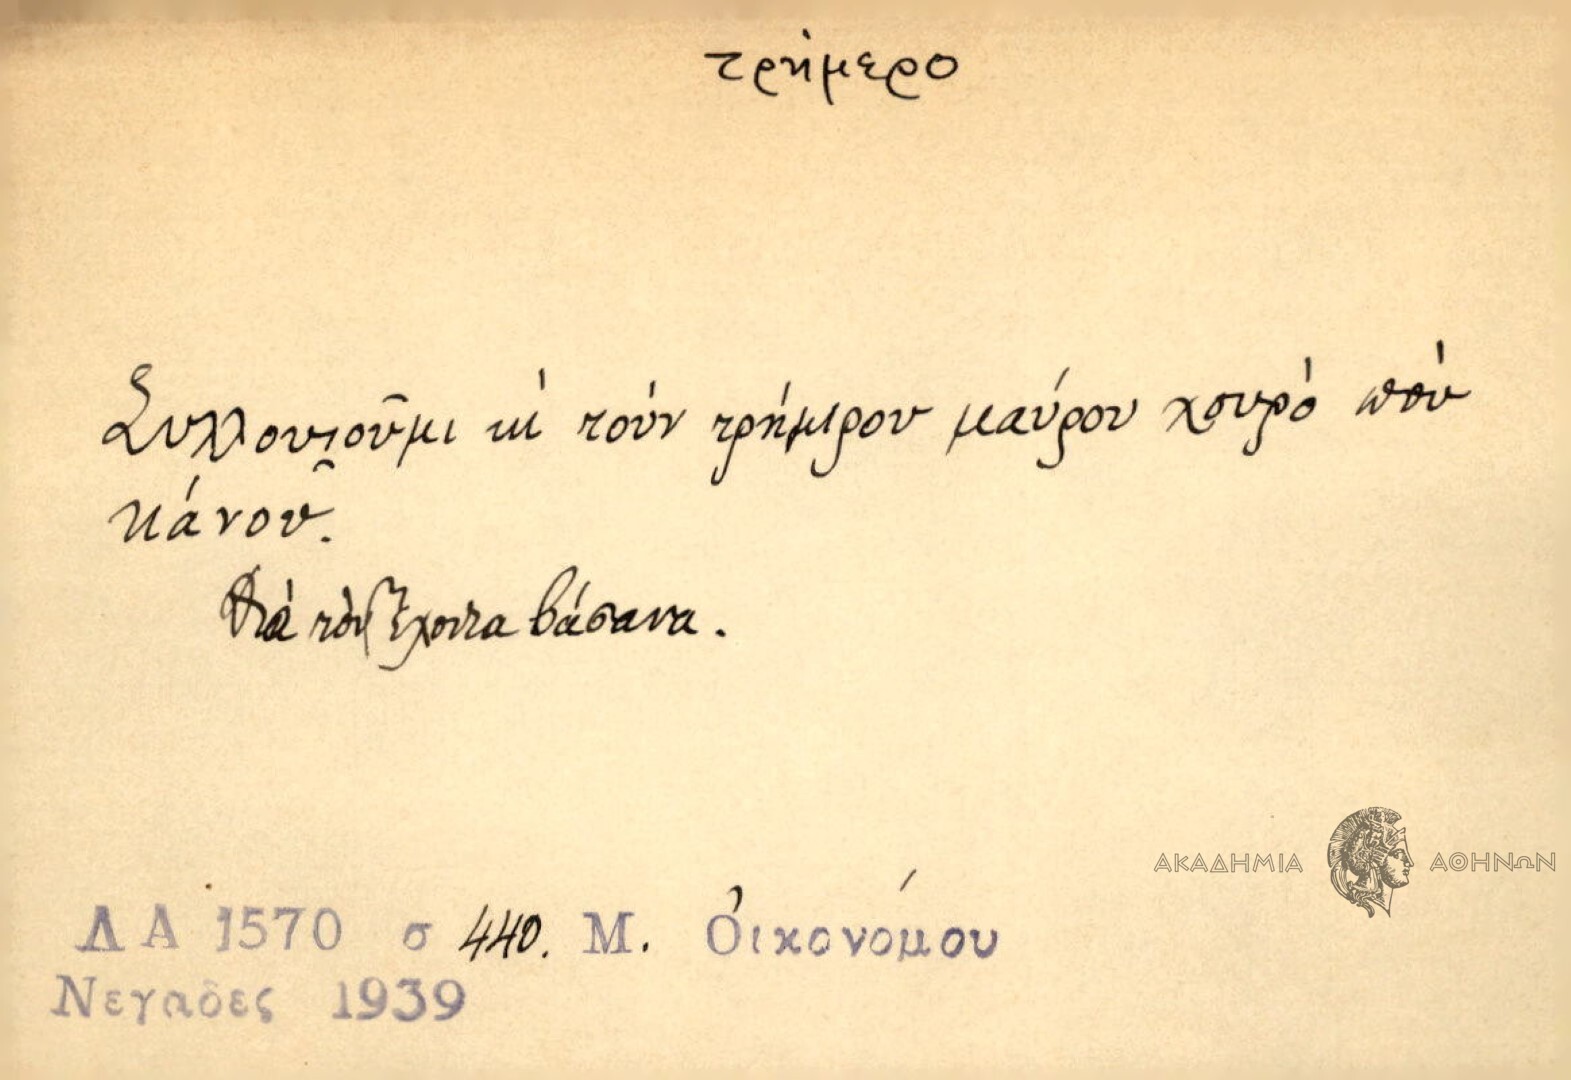 τρήμερο
Συλλουιοῦμι κὶ τοὺν τρήμιρου μαύρου χουρὸ ποὺ
κάνου.
Διὰ τὸν ἔχοντα βάσανα.
ΑΚΑΔΗΜΙΑ ΑΘΗΝΩΝ
ΛΑ 1570 σ 440. Μ. Οἰκονόμου
Νεγαδες 1939